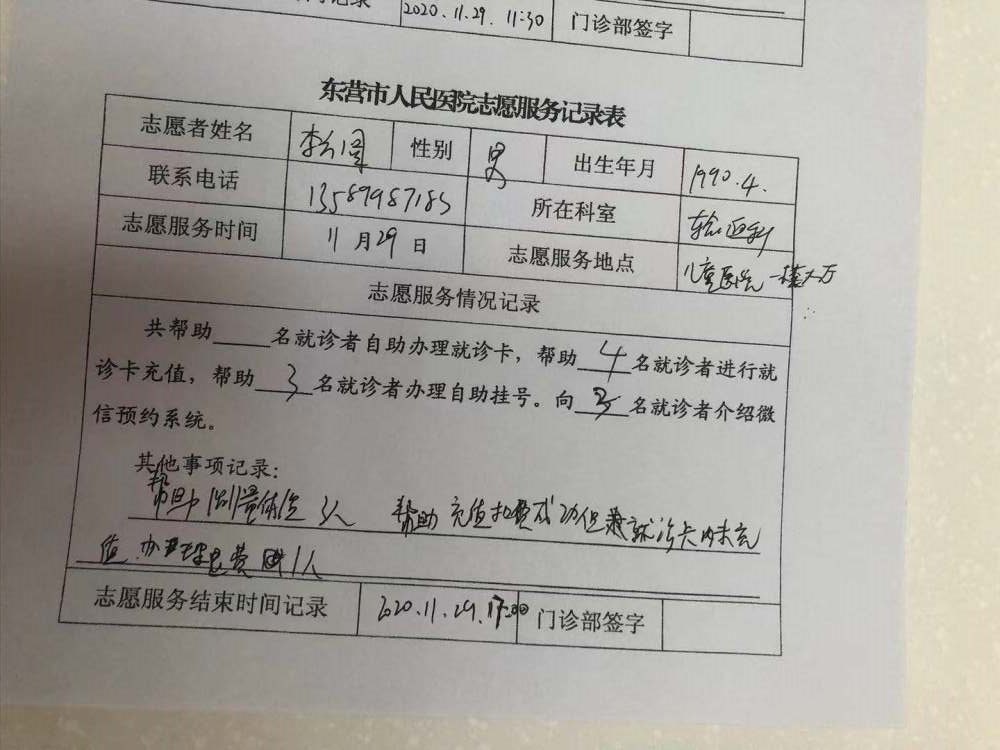 2020.11.29. 11:30 门诊部签字
东营市人民医院志愿服务记录表
志愿者姓名 性别 男 出生年月 1990.4.
联系电话 13589987185 所在科室 输血科
志愿服务时间 11月29日 志愿服务地点 儿童医院一楼大厅
志愿服务情况记录
共帮助____名就诊者自助办理就诊卡，帮助 4 名就诊者进行就
诊卡充值，帮助 3 名就诊者办理自助挂号。向 3 名就诊者介绍微
信预约系统。
其他事项记录：
帮助测量体温 3人 帮助充值扣费成功但就诊卡内未充
值 办理退费 1人
志愿服务结束时间记录 2020.11.29.17:00 门诊部签字